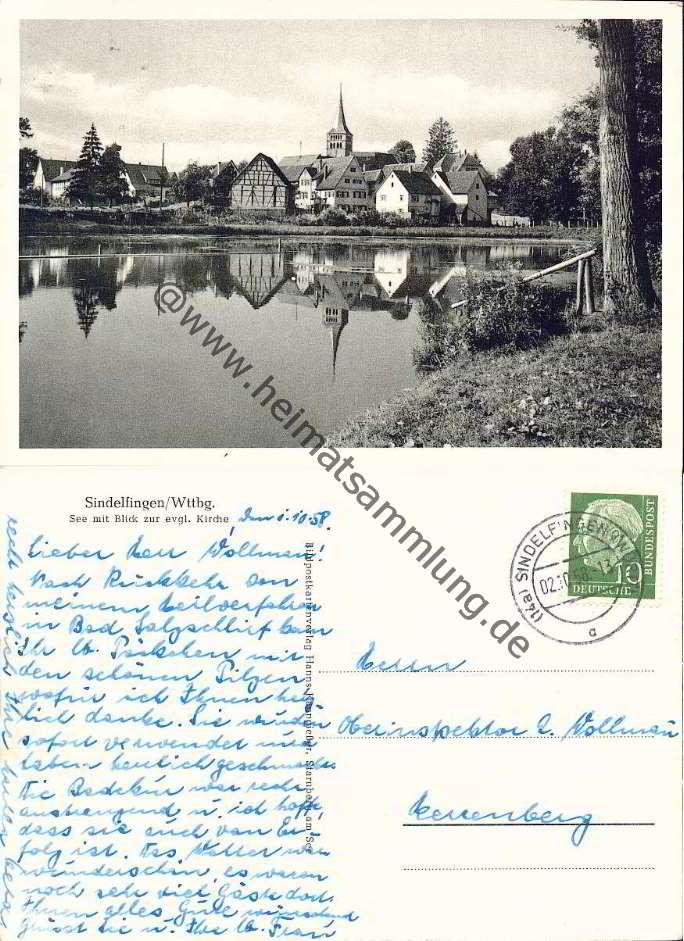 @www.heimatsammlung.de
Sindelfingen/Wttbg.
See mit Blick zur evgl. Kirche
Den 1.10.58.
Lieber Herr Wollman!
Nach Rückkehr von
meinem Heilverfahren
in Bad Salzschlirf kam
Ihr lb. Päckchen mit
den schönen Pilzen
wofür ich Ihnen herz
lich danke. Sie wurden
sofort verwendet und
haben herrlich geschmeckt.
Die Badekur war recht
anstrengend u. ich hoffe,
dass sie auch von Er
folg ist. Das Wetter war
wunderschön, es waren
noch sehr viel Gäste dort.
Ihnen alles Gute wünschend
grüsst Sie u. Ihre lb. Frau
recht herzlich Ihre
Bildpostkartenverlag Hanns Starnberg am See
SINDELFINGEN (W
(14a)
02.10.58
a
10
DEUTSCHE
BUNDESPOST
Herrn
Oberinspektor Wollman
Herrenberg